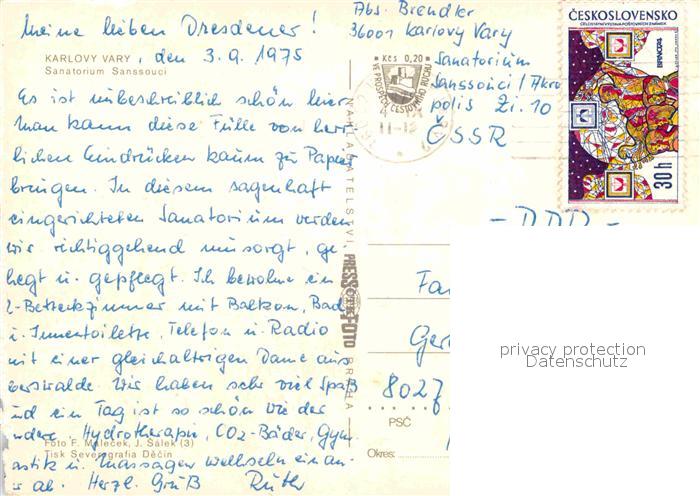 Meine lieben Dresdener!
KARLOVY VARY, den 3.9.1975
Sanatorium Sanssouci
Es ist unbeschreiblich schön hier.
Man kann diese Fülle von herr-
lichen Eindrücken kaum zu Papier
bringen. In diesem sagenhaft
eingerichteten Sanatorium werden
wir richtiggehend umsorgt, ge-
hegt u. gepflegt. Ich bewohne ein
2-Bettzimmer mit Balkon, Bad
u. Innentoilette, Telefon u. Radio
mit einer gleichaltrigen Dame aus
erswalde. Wir haben sehr viel Spaß
und ein Tag ist so schön wie der
andere. Hydrotherapie, CO2-Bäder, Gym-
Foto F. Maleček, J. Sálek (3)
Tisk Severografia Děčín
astik u. Massagen wechseln einan-
er ab. Herzl. Gruß Ruth
NAKLADATELSTVÍ PRESSFOTO PRAHA
Abs. Brendler
36001 Karlovy Vary
Sanatorium
Sanssouci / Akro
polis Zi. 10
ČSSR
Kčs 0,20
VE PROSPĚCH CESTOVNÍHO RUCHU
ČESKOSLOVENSKO
CELOSTÁTNÍ VÝSTAVA POŠTOVNÍCH ZNÁMEK
BRNO 74
30h
- DDR -
Fa
Ger
8027
PSČ
Okres:
privacy protection
Datenschutz